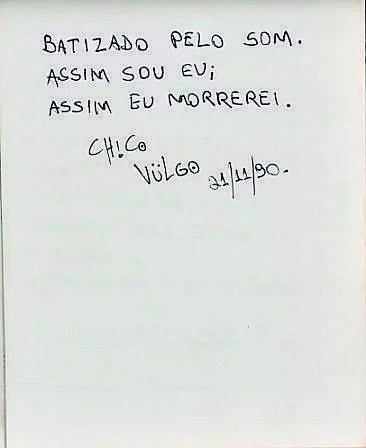 BATIZADO PELO SOM.
ASSIM SOU EU;
ASSIM EU MORREREI.
CH!CO
VÜLGO 21/11/90.